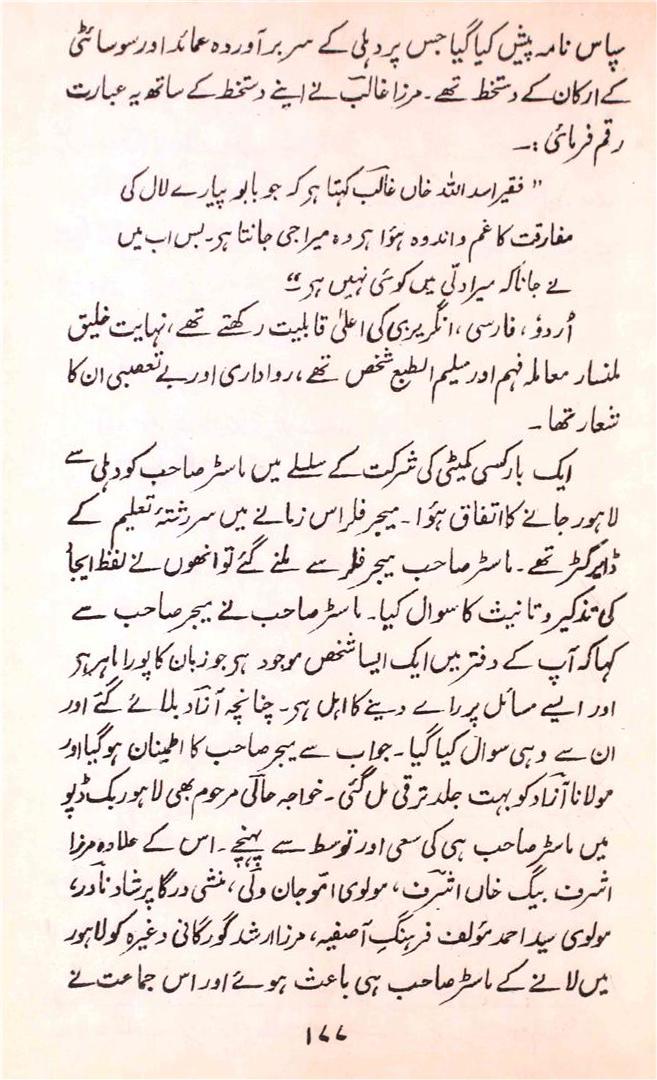 سپاس نامہ پیش کیا گیا جس پر دہلی کے سربرآوردہ عمائد اور سوسائٹی
کے ارکان کے دستخط تھے۔ مرزا غالبؔ نے اپنے دستخط کے ساتھ یہ عبارت
رقم فرمائی :۔
" فقیر اسد اللہ خاں غالبؔ کہتا ہر کہ جو بابو پیارے لال کی
مفارقت کا غم و اندوہ ہؤا ہر وہ میرا جی جانتا ہر۔ بس اب میں
نے جانا کہ میرا دلّی میں کوئی نہیں ہر "
اُردؤ، فارسی، انگریزی کی اعلیٰ قابلیت رکھتے تھے، نہایت خلیق
ملنسار معاملہ فہم اور سلیم الطبع شخص تھے، رواداری اور بے تعصبی ان کا
شعار تھا۔
ایک بار کسی کمیٹی کی شرکت کے سلسلے میں ماسٹر صاحب کو دہلی سے
لاہور جانے کا اتفاق ہؤا۔ میجر فلر اس زمانے میں سررشتۂ تعلیم کے
ڈایرکٹر تھے۔ ماسٹر صاحب میجر فلر سے ملنے گئے تو انھوں نے لفظ ایجاد
کی تذکیر و تانیث کا سوال کیا۔ ماسٹر صاحب نے میجر صاحب سے
کہا کہ آپ کے دفتر میں ایک ایسا شخص موجود ہر جو زبان کا پورا ماہر ہر
اور ایسے مسائل پر راے دینے کا اہل ہر۔ چنانچہ آزاؔد بلائے گئے اور
ان سے وہی سوال کیا گیا۔ جواب سے میجر صاحب کا اطمینان ہو گیا اور
مولانا آزاؔد کو بہت جلد ترقی مل گئی۔ خواجہ حالؔی مرحوم بھی لاہور بک ڈپو
میں ماسٹر صاحب ہی کی سعی اور توسط سے پہنچے۔ اس کے علاوہ مرزا
اشرف بیگ خاں اشرؔف، مولوی امّوجان ولؔی، منشی درگا پرشاد نادؔر،
مولوی سید احمد مؤلف فرہنگِ آصفیہ، مرزا ارشد گورگانی وغیرہ کو لاہور
میں لانے کے ماسٹر صاحب ہی باعث ہوئے اور اس جماعت نے
۱۷۷